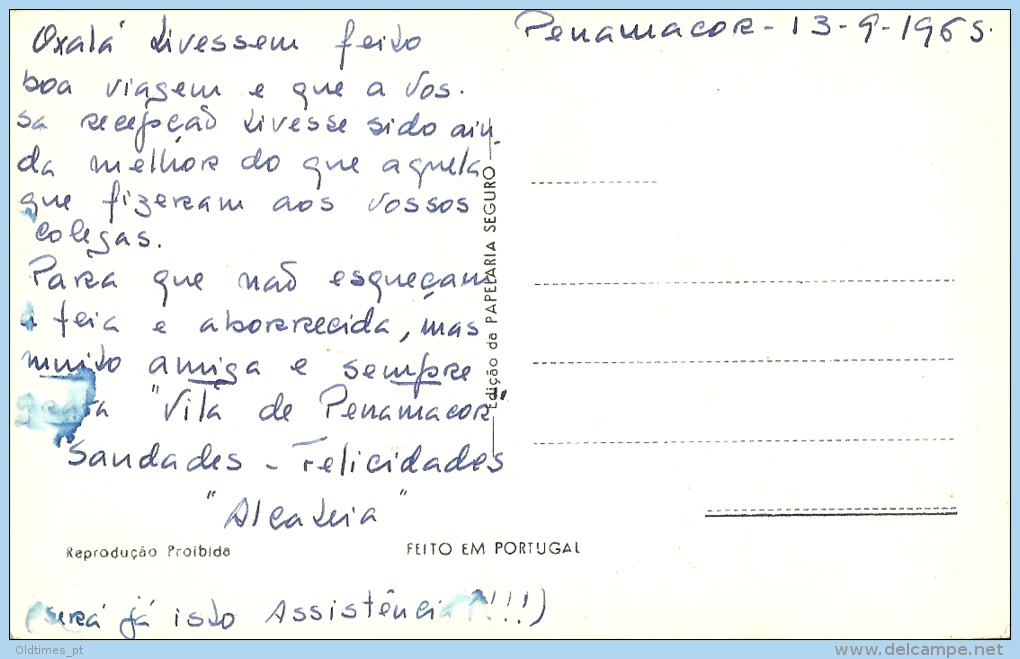 Penamacor - 13-9-1965.
Oxalá tivessem feito
boa viagem e que a vos.
sa recepção tivesse sido ain.
da melhor do que aquela
que fizeram aos vossos
colegas.
Para que não esqueçam
a feia e aborrecida, mas
muito amiga e sempre
grata "Vila de Penamacor"
Saudades - Felicidades
"Alcateia"
Edição da PAPELARIA SEGURO
Reprodução Proibida
FEITO EM PORTUGAL
(será já isto Assistência?!!!)
Oldtimes_pt
www.delcampe.net